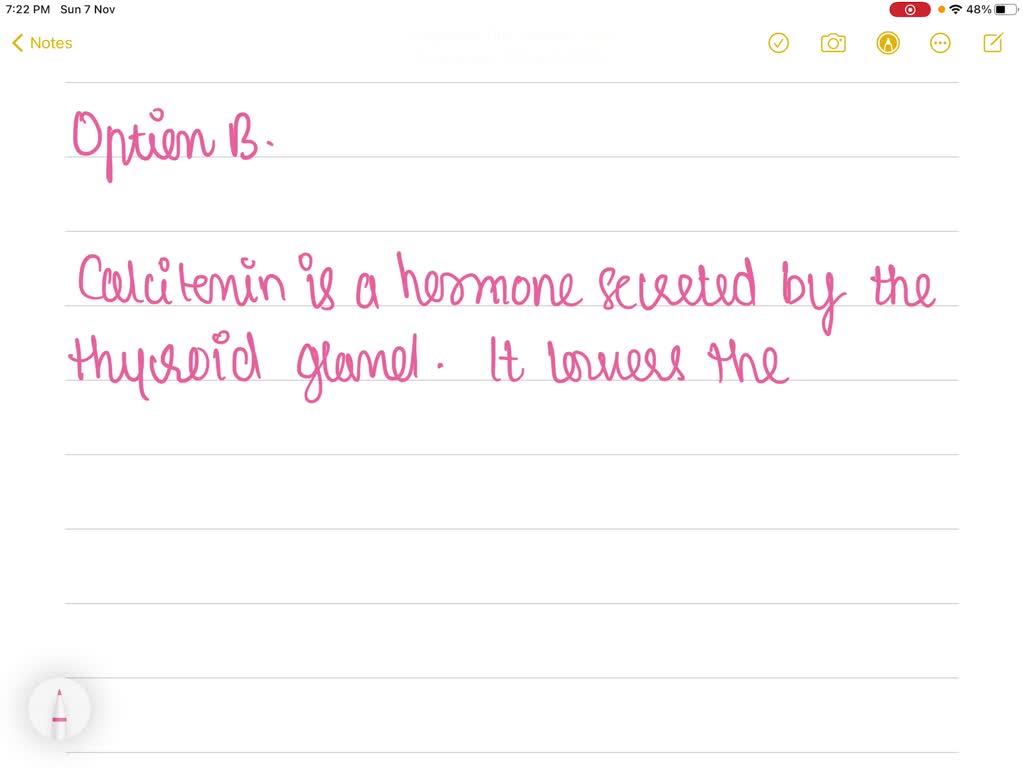 7:22 PM Sun 7 Nov
48%
Notes
Option B.
Calcitonin is a hormone secreted by the
thyroid gland. It lowers the